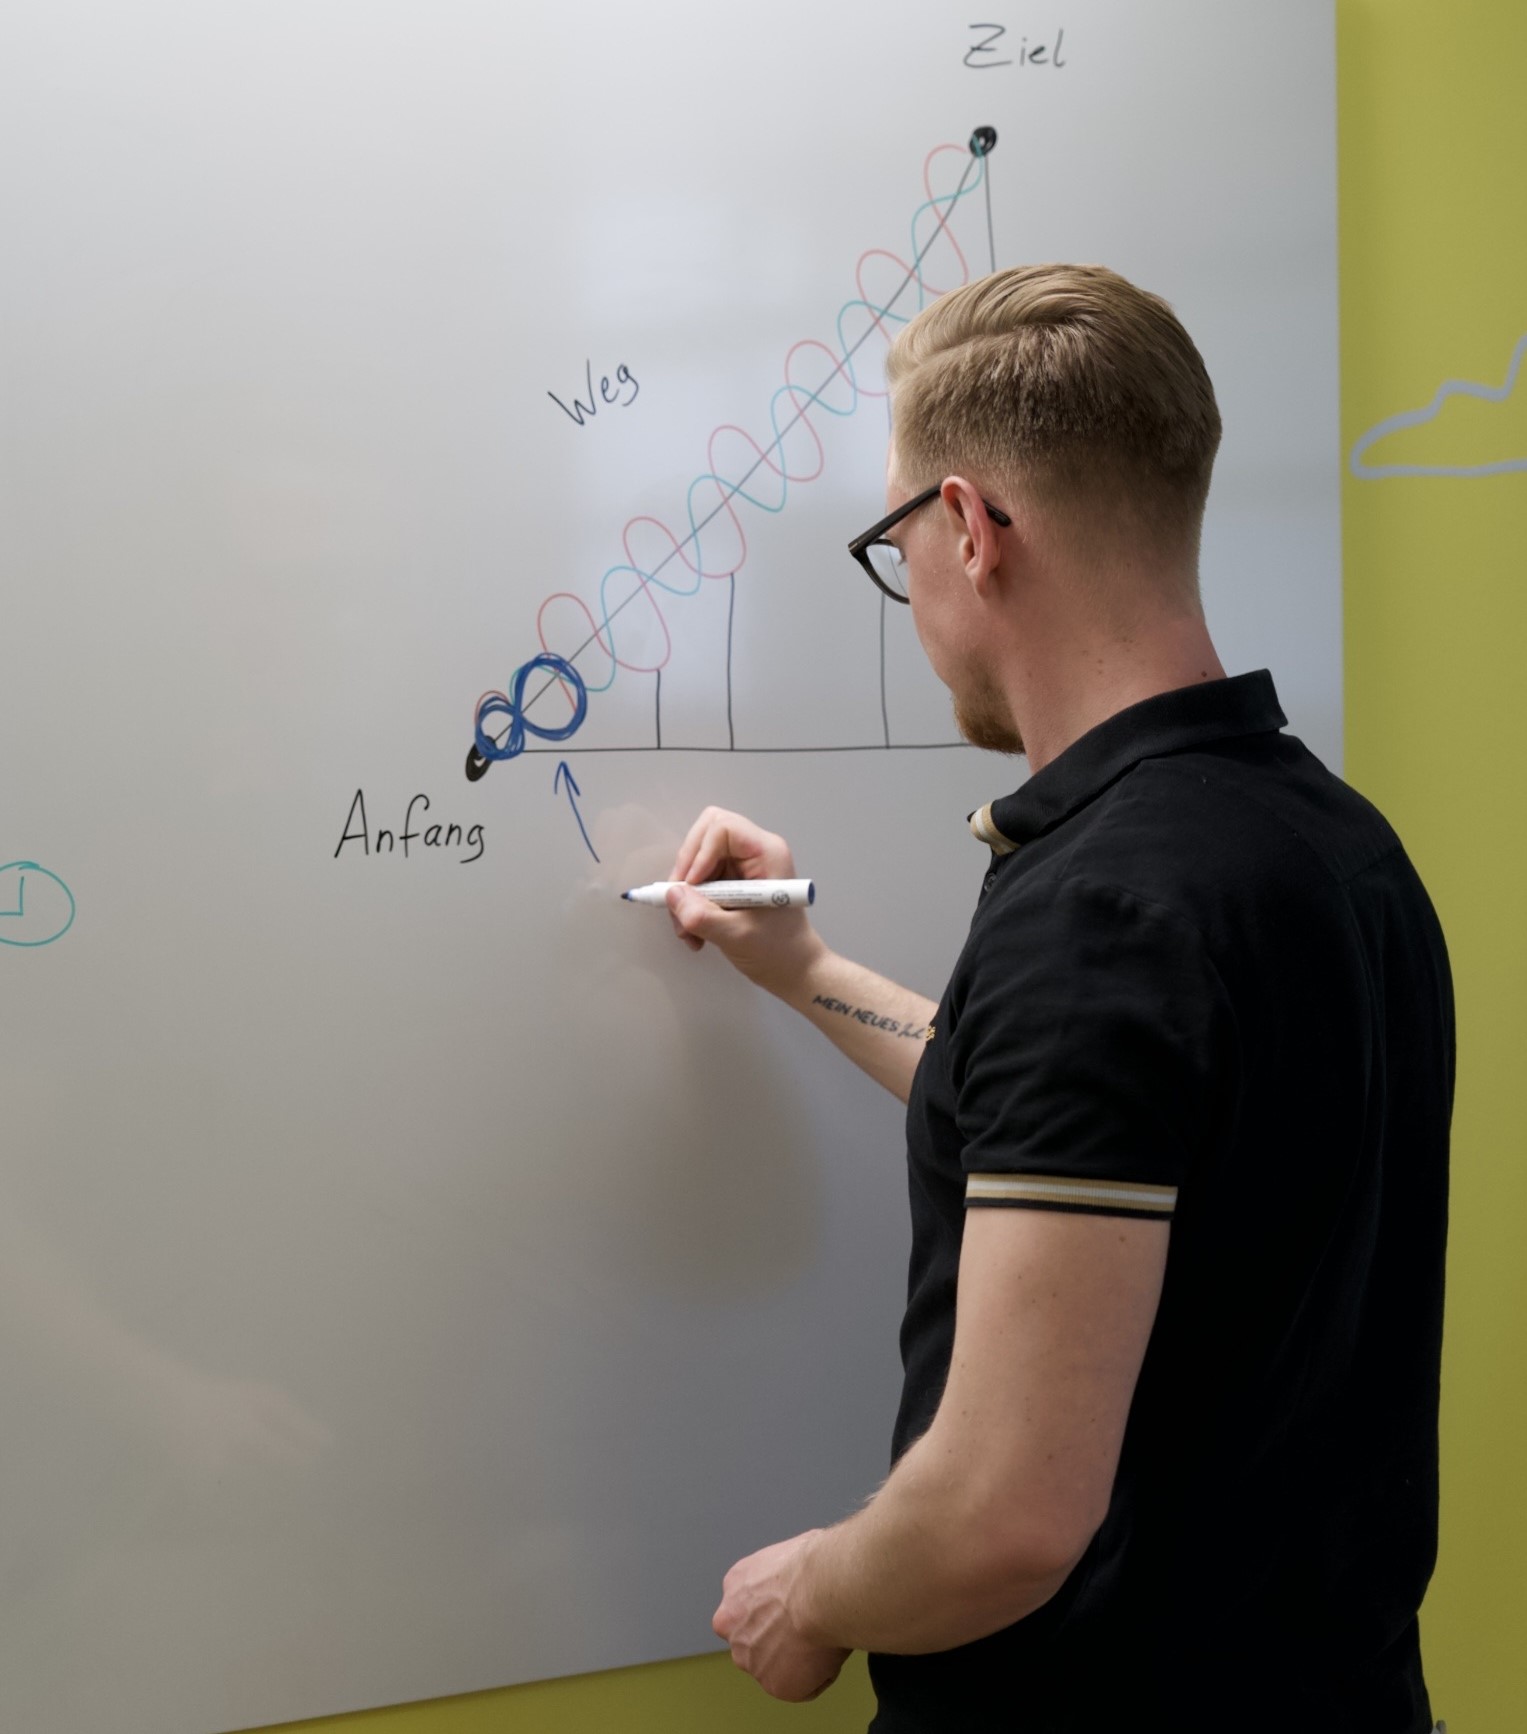 Ziel
Weg
Anfang
MEIN NEUES